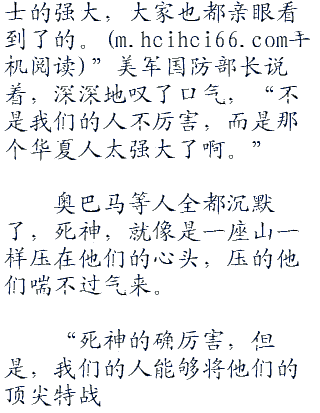 士的强大，大家也都亲眼看
到了的。(m.hcihci66.com手
机阅读)”美军国防部长说
着，深深地叹了口气，“不
是我们的人不厉害，而是那
个华夏人太强大了啊。”
奥巴马等人全都沉默
了，死神，就像是一座山一
样压在他们的心头，压的他
们喘不过气来。
“死神的确厉害，但
是，我们的人能够将他们的
顶尖特战